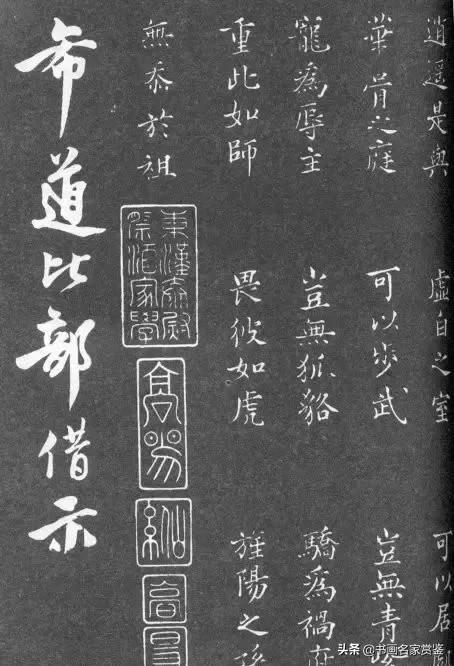 逍遥是與 虛白之室 可以居
華胥之庭 可以步武 豈無青
寵為辱主 豈無狐貉 驕為禍
重此如師 畏彼如虎 旌陽之孫
無忝於祖
東漢太尉
祭酒家學
希道比部借示
头条 @书画名家赏鉴